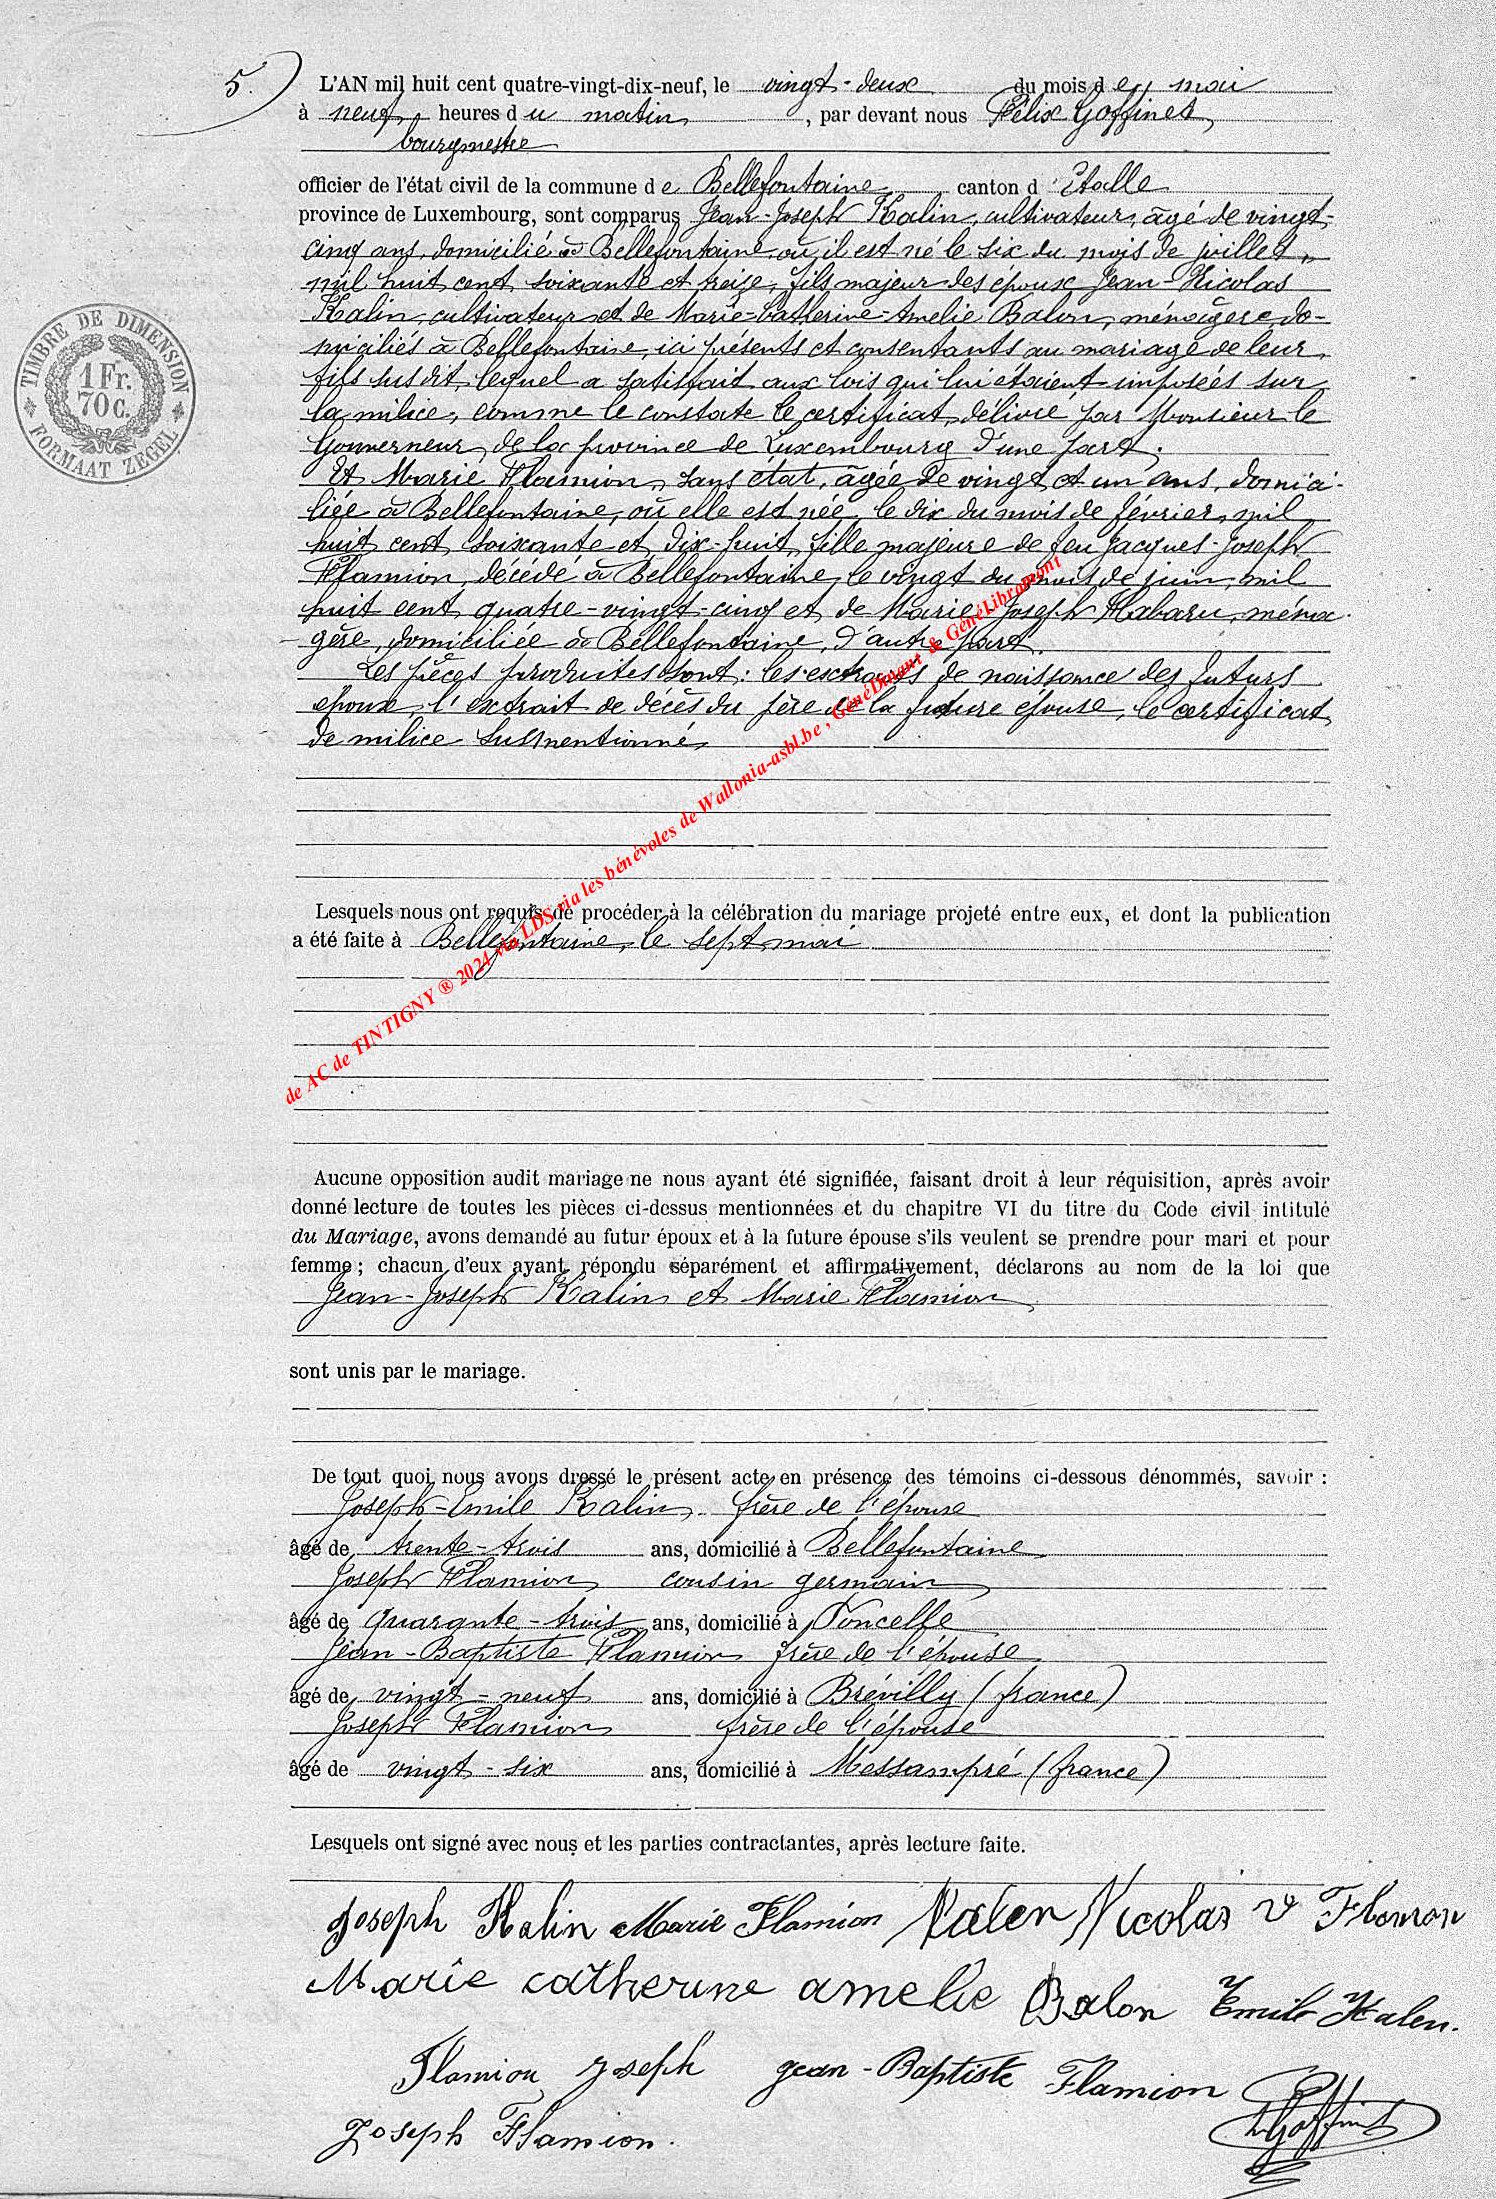 5.
L'AN mil huit cent quatre-vingt-dix-neuf, le vingt-deux du mois de mai
à neuf heures du matin, par devant nous Félix Goffinet,
bourgmestre
officier de l'état civil de la commune de Bellefontaine canton d'Etalle
province de Luxembourg, sont comparus Jean-Joseph Kalin, cultivateur, âgé de vingt-
cinq ans, domicilié à Bellefontaine, où il est né le six du mois de juillet
mil huit cent soixante et treize, fils majeur des époux Jean-Nicolas
Kalin, cultivateur et de Marie-Catherine-Amelie Balon, ménagère do-
miciliés à Bellefontaine, ici présents et consentants au mariage de leur
fils susdit, lequel a satisfait aux lois qui lui étaient imposées sur
la milice, comme le constate le certificat délivré par Monsieur le
Gouverneur de la province de Luxembourg d'une part.
Et Marie Flamion, sans état, âgée de vingt et un ans, domici-
liée à Bellefontaine, où elle est née le dix du mois de février, mil
huit cent soixante et dix-huit, fille majeure de feu Jacques-Joseph
Flamion, décédé à Bellefontaine, le vingt du mois de juin, mil
huit cent quatre-vingt-cinq et de Marie-Joseph Habaru, ména-
gère, domiciliée à Bellefontaine, d'autre part.
Les pièces produites sont: les extraits de naissance des futurs
époux, l'extrait de décès du père de la future épouse, le certificat
de milice susmentionné
Lesquels nous ont requis de procéder à la célébration du mariage projeté entre eux, et dont la publication
a été faite à Bellefontaine, le sept mai
Aucune opposition audit mariage ne nous ayant été signifiée, faisant droit à leur réquisition, après avoir
donné lecture de toutes les pièces ci-dessus mentionnées et du chapitre VI du titre du Code civil intitulé
du Mariage, avons demandé au futur époux et à la future épouse s'ils veulent se prendre pour mari et pour
femme; chacun d'eux ayant répondu séparément et affirmativement, déclarons au nom de la loi que
Jean-Joseph Kalin et Marie Flamion
sont unis par le mariage.
De tout quoi nous avons dressé le présent acte en présence des témoins ci-dessous dénommés, savoir :
Joseph-Emile Kalin, frère de l'épouse
âgé de trente-trois ans, domicilié à Bellefontaine
Joseph Flamion cousin germain
âgé de quarante-trois ans, domicilié à Poncelle
Jean-Baptiste Flamion frère de l'épouse
âgé de vingt-neuf ans, domicilié à Brévilly (france)
Joseph Flamion frère de l'épouse
âgé de vingt-six ans, domicilié à Messampré (france)
Lesquels ont signé avec nous et les parties contractantes, après lecture faite.
Joseph Kalin Marie Flamion Kalen Nicolas
Marie catherine amelie Balon Emile Kalen.
Flamion Joseph Jean-Baptiste Flamion
Joseph Flamion. Goffinet
TIMBRE DE DIMENSION
1 Fr.
70 C.
FORMAAT ZEGEL
de AC de TINTIGNY ® 2024 via LDS via les bénévoles de Wallonia-asbl.be , GénéDinant & GénéLibramont